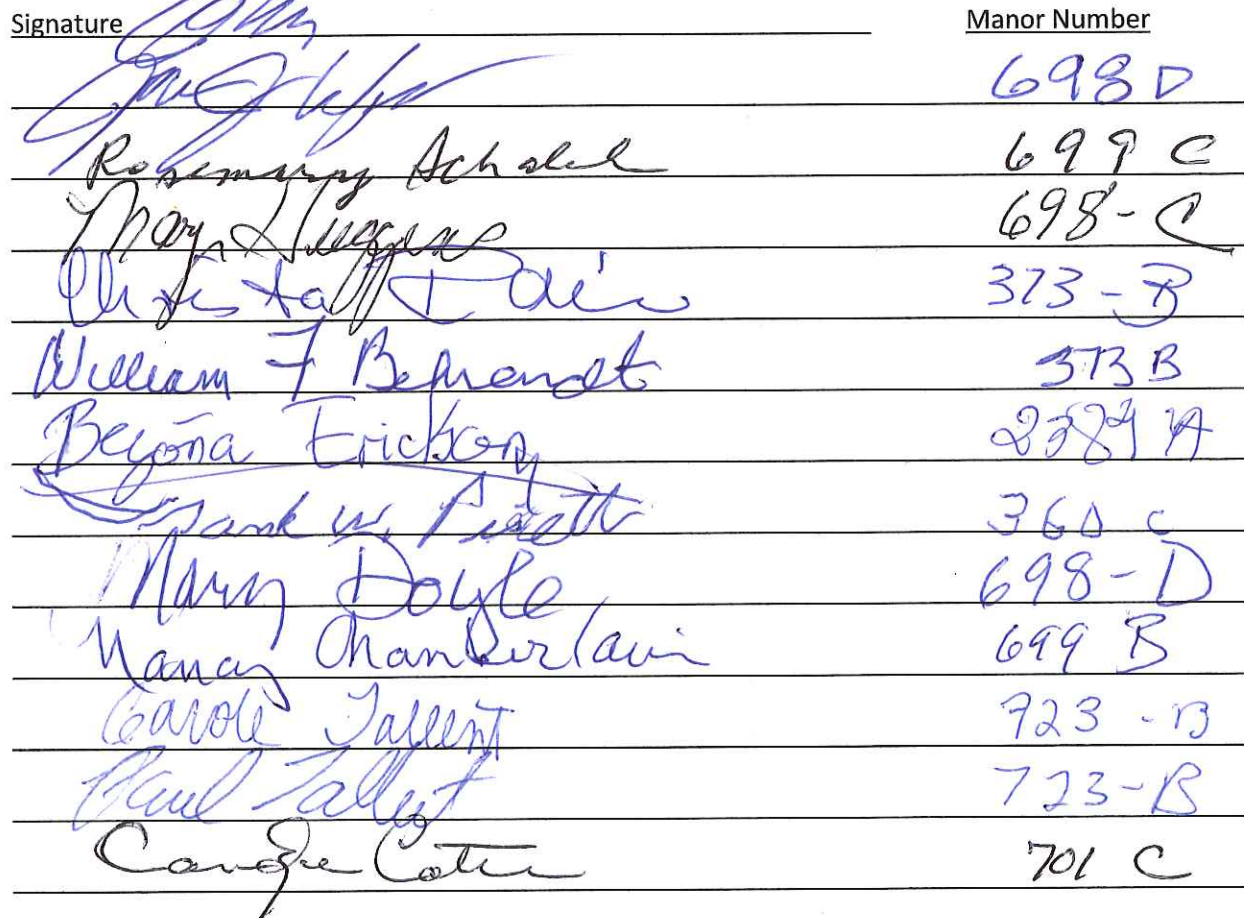 Signature Manor Number
698 D
Rosemary 699 C
Mary 698-C
Christa 373-B
William F Behrendt 373 B
Begoña Erickson 2384 A
Frank W. 360 C
Mary Doyle 698-D
Nancy Chamberlain 699 B
Carole Tallent 723-B
Paul Tallent 723-B
701 C